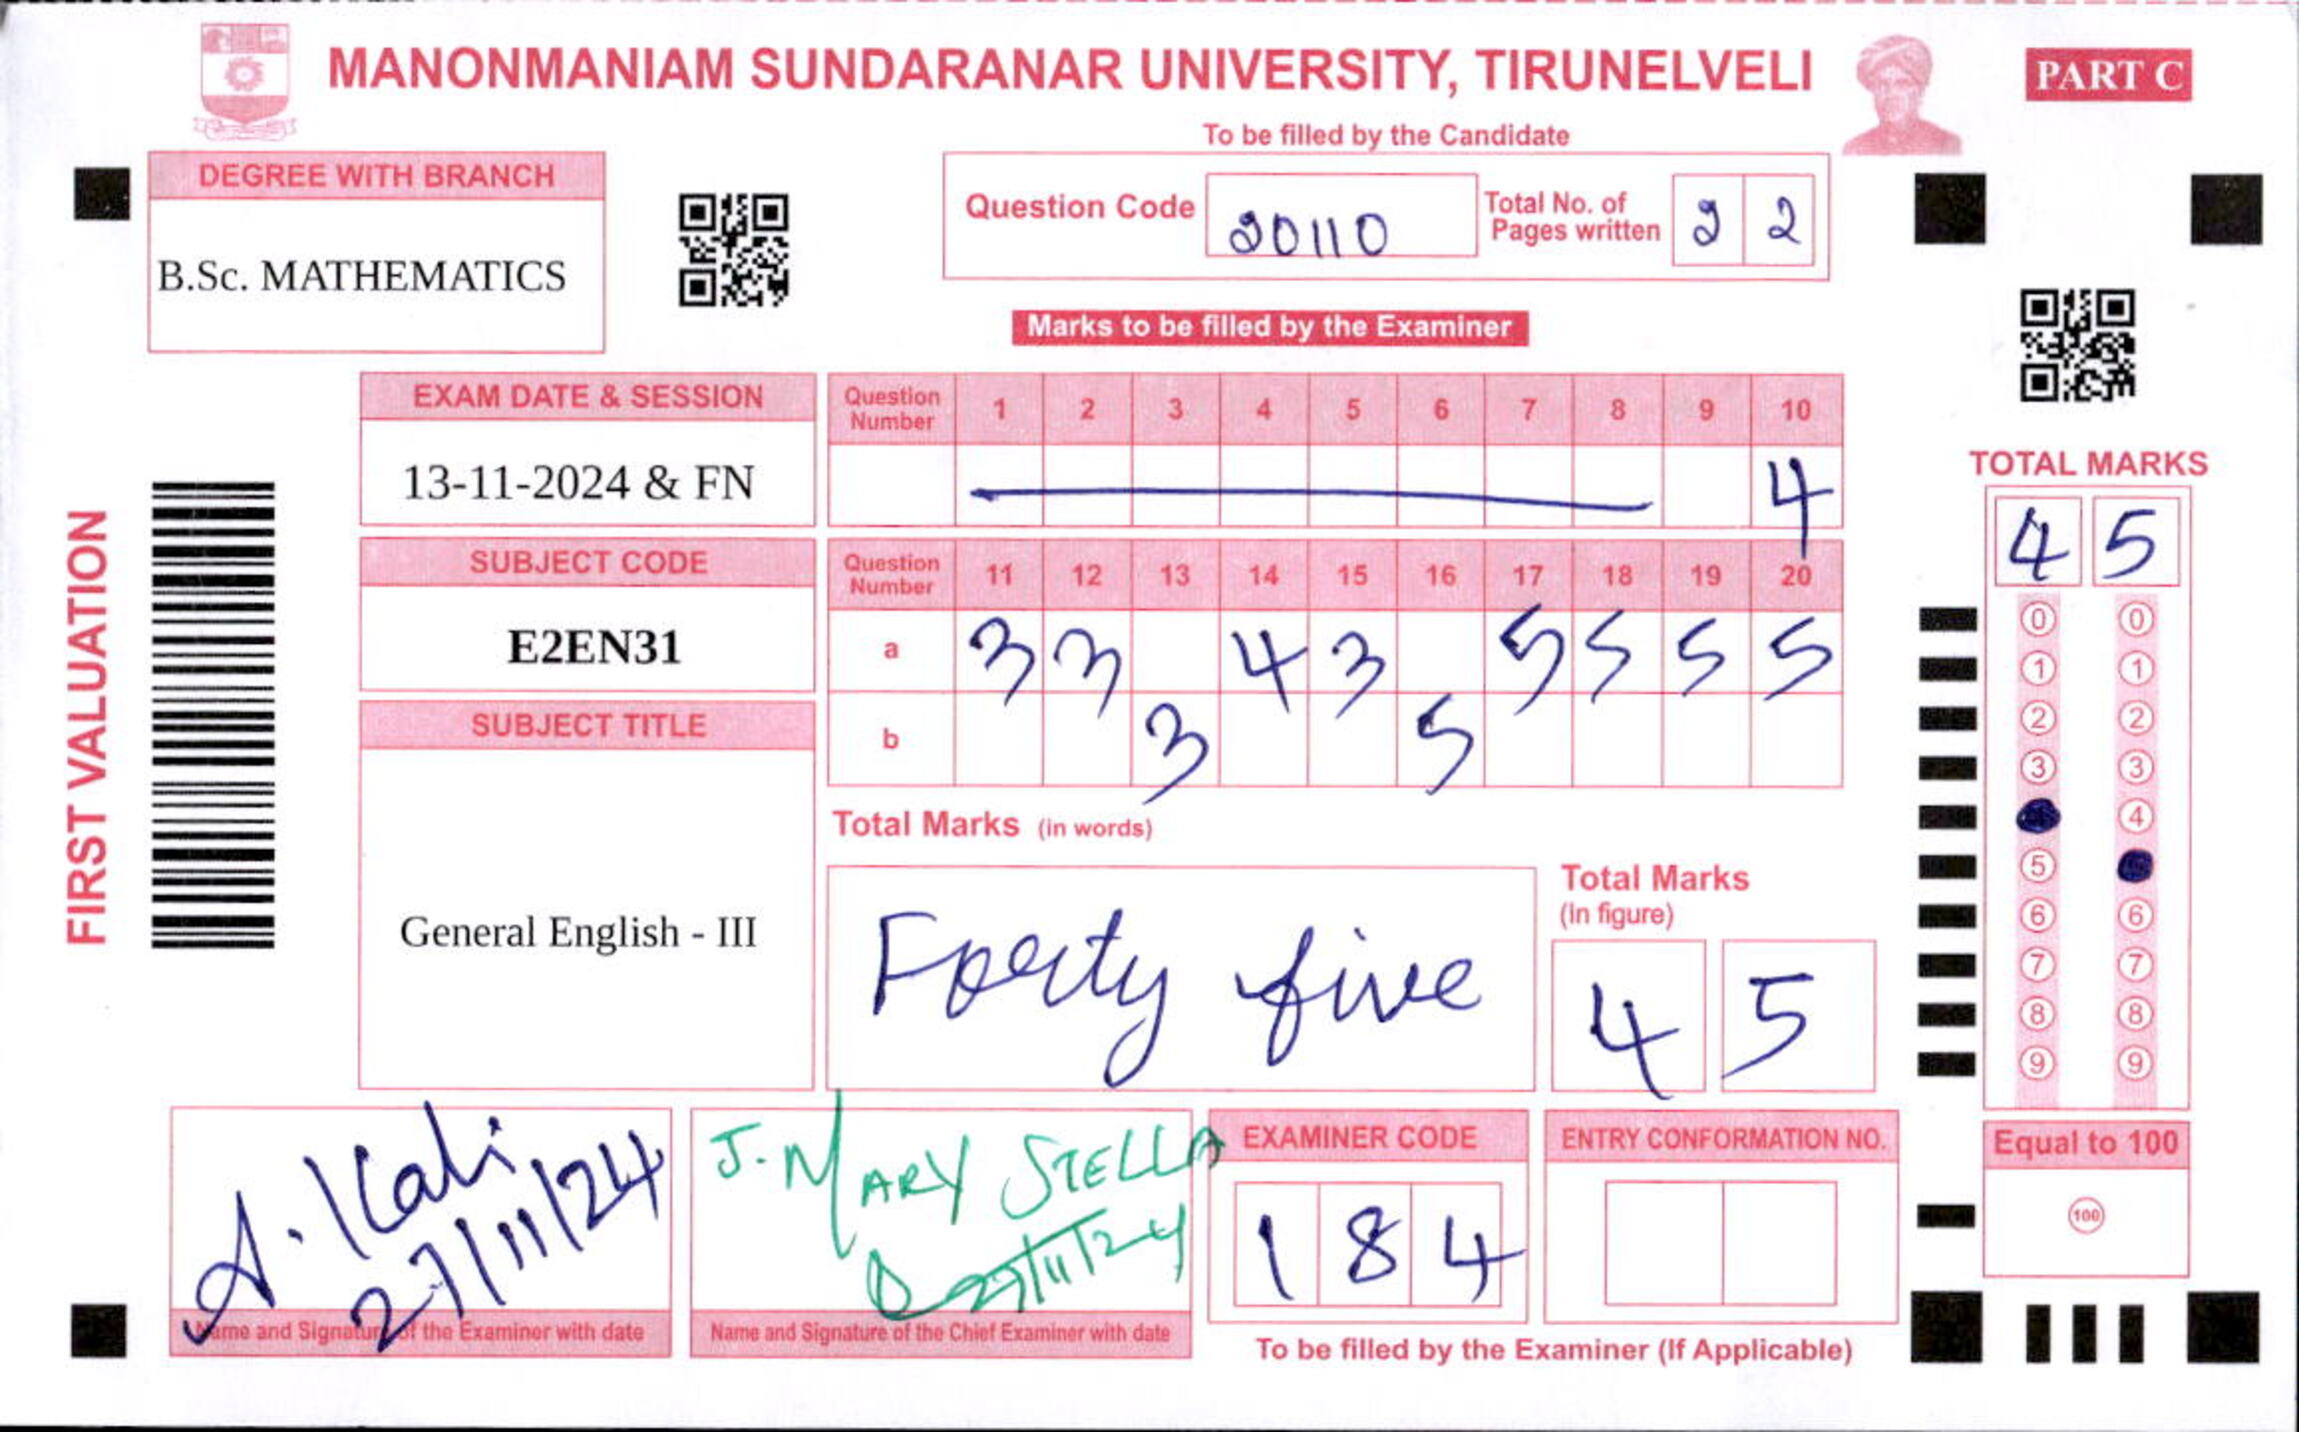 MANONMANIAM SUNDARANAR UNIVERSITY, TIRUNELVELI
PART C
To be filled by the Candidate
DEGREE WITH BRANCH
B.Sc. MATHEMATICS
Question Code 20110 Total No. of Pages written 2 2
Marks to be filled by the Examiner
EXAM DATE & SESSION
13-11-2024 & FN
Question Number 1 2 3 4 5 6 7 8 9 10
4
SUBJECT CODE
E2EN31
Question Number 11 12 13 14 15 16 17 18 19 20
a 3 3 4 3 5 5 5 5
b 3 5
SUBJECT TITLE
General English - III
Total Marks (in words)
Forty five
Total Marks
(In figure)
4 5
FIRST VALUATION
TOTAL MARKS
4 5
0 0
1 1
2 2
3 3
4
5
6 6
7 7
8 8
9 9
A. Kali
27/11/24
Name and Signature of the Examiner with date
J. MARY STELLA
27/11/24
Name and Signature of the Chief Examiner with date
EXAMINER CODE
1 8 4
ENTRY CONFORMATION NO.
To be filled by the Examiner (If Applicable)
Equal to 100
100